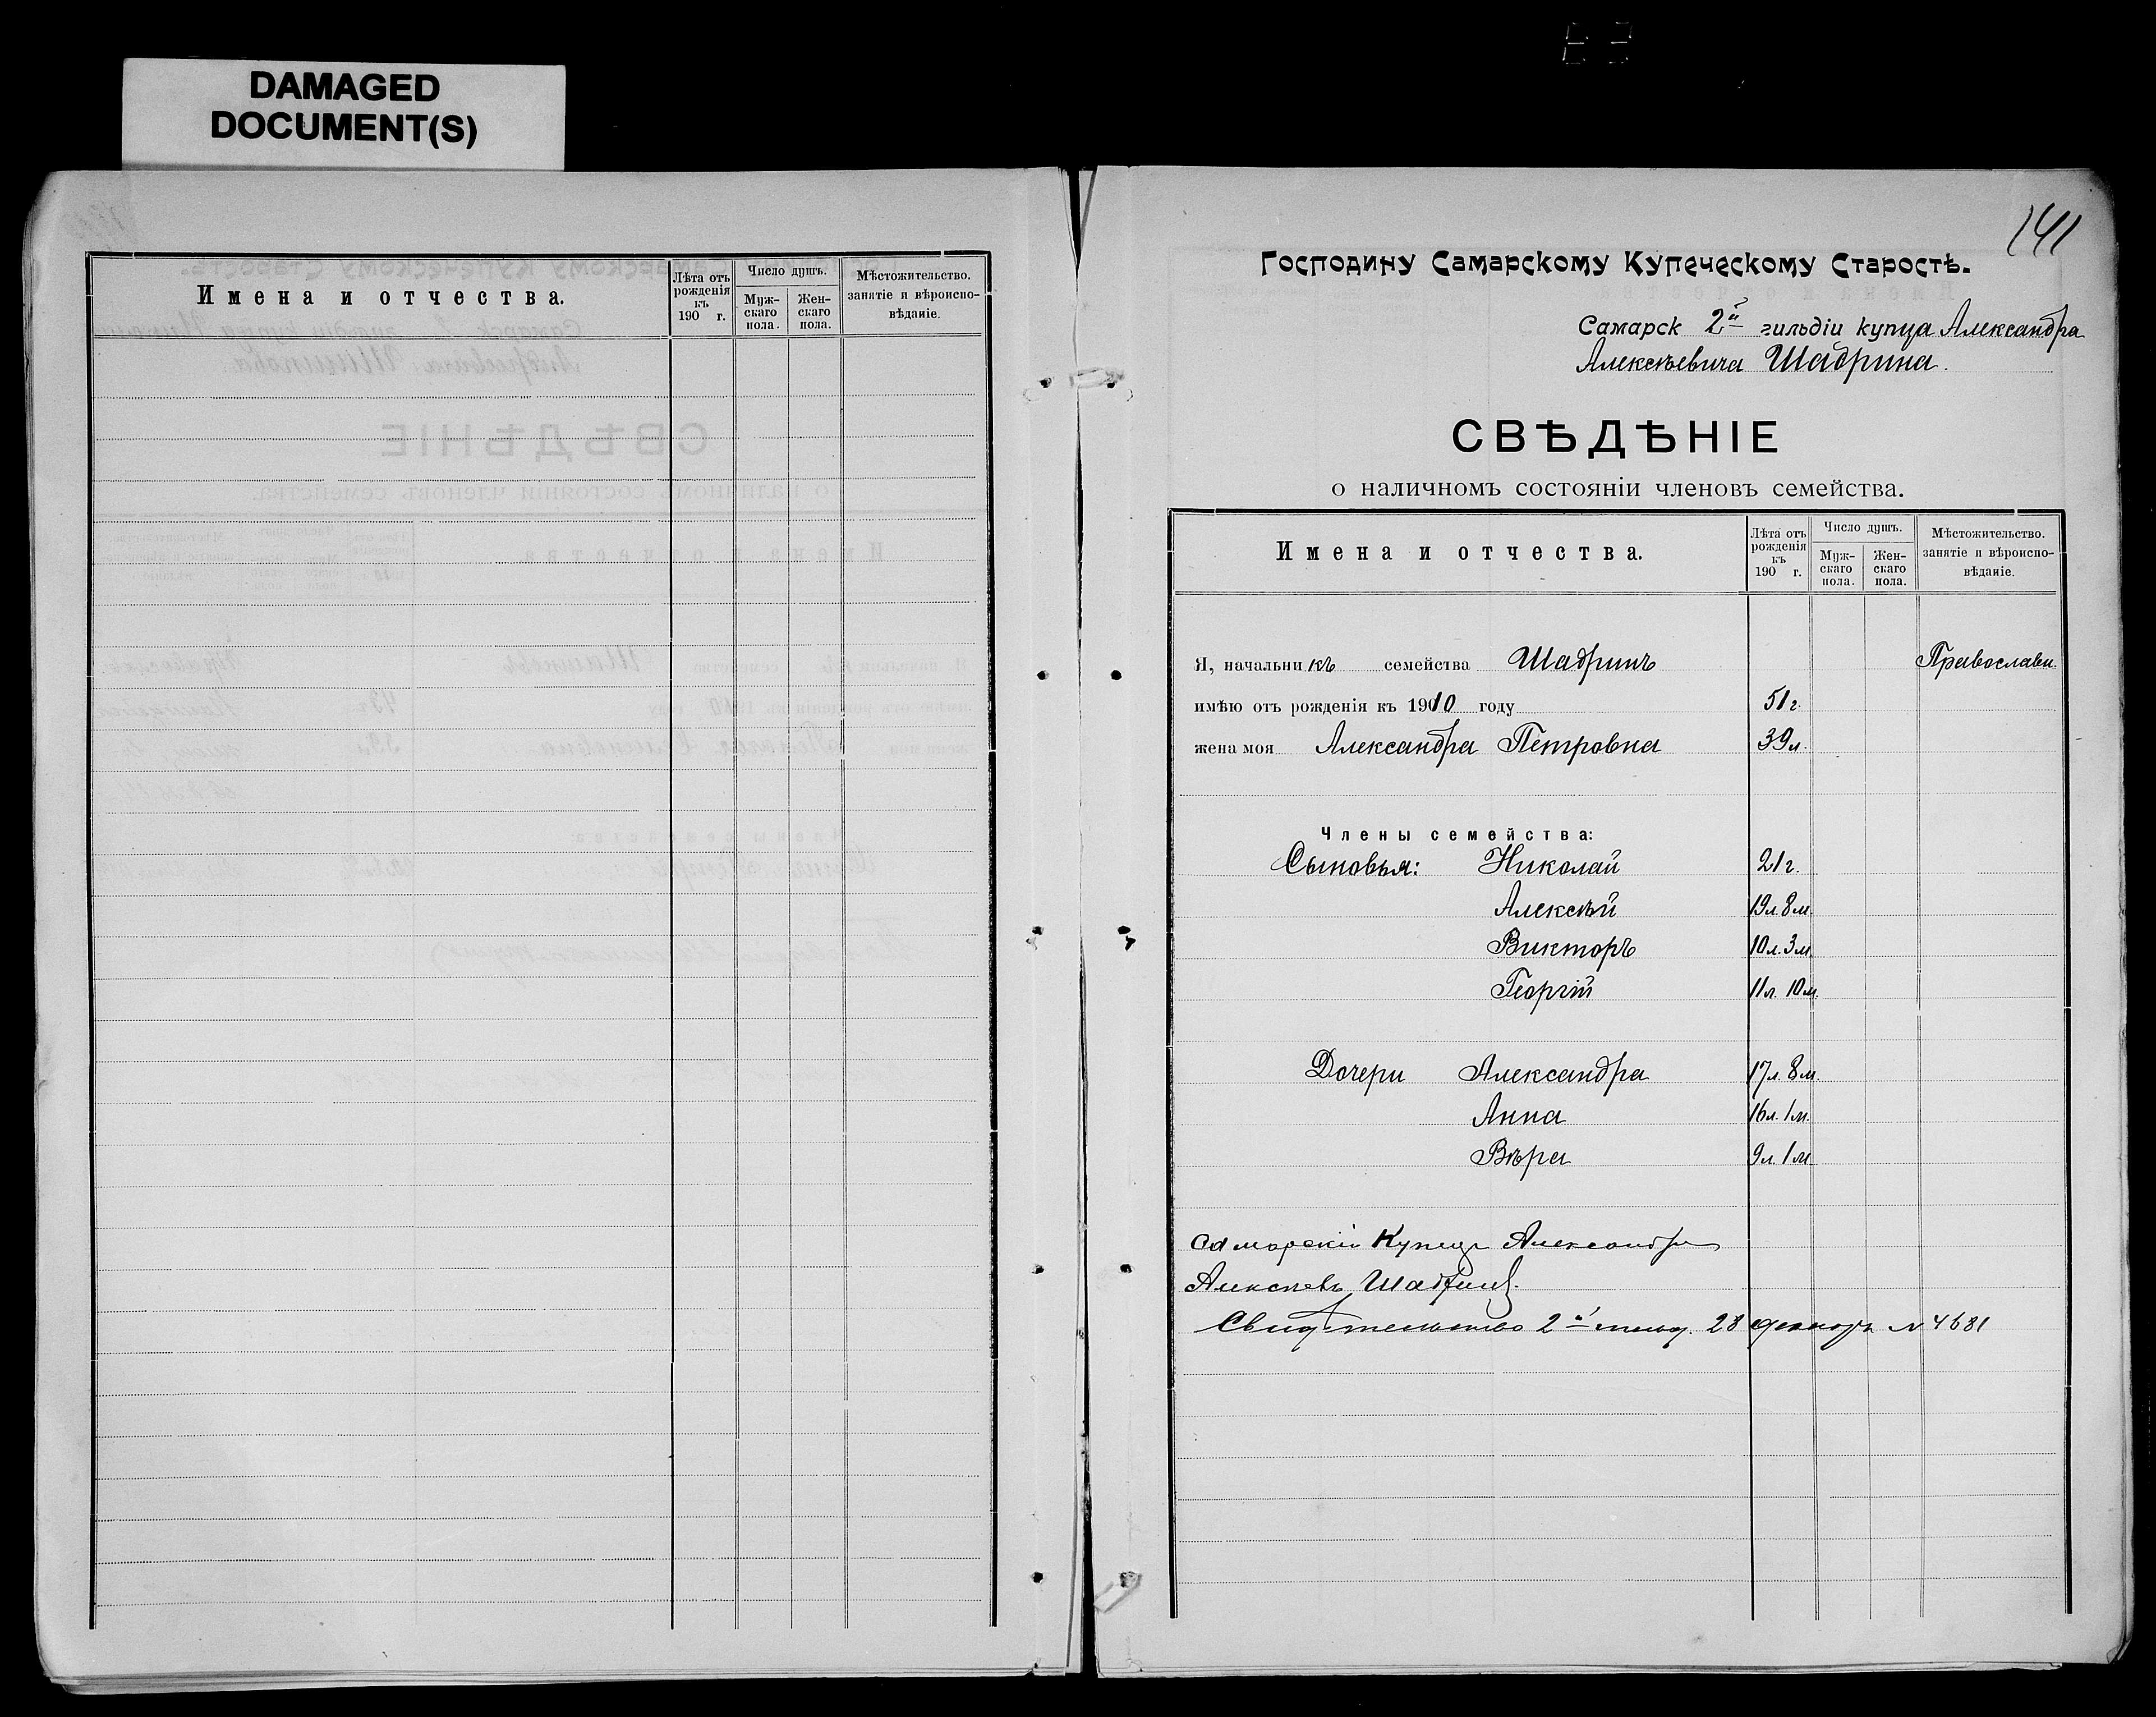 DAMAGED
DOCUMENT(S)
Имена и отчества.
Лѣта отъ рожденія къ 190 г.
Число душъ.
Мужскаго пола.
Женскаго пола.
Мѣстожительство. занятіе и вѣроисповѣданіе.
141
Господину Самарскому Купеческому Старостѣ.
Самарск 2й гильдіи купца Александра
Алексѣевича Шадрина.
СВѢДѢНІЕ
о наличномъ состояніи членовъ семейства.
Имена и отчества.
Лѣта отъ рожденія къ 190 г.
Число душъ.
Муж-скаго пола.
Жен-скаго пола.
Мѣстожительство. занятіе и вѣроиспо-вѣданіе.
Я, начальникъ семейства Шадринъ Православн.
имѣю отъ рожденія къ 1910 году 51 г.
жена моя Александра Петровна 39 л.
Члены семейства:
Сыновья: Николай 21 г.
Алексѣй 19 л. 8 м.
Викторъ 10 л. 3 м.
Георгій 11 л. 10 м.
Дочери Александра 17 л. 8 м.
Анна 16 л. 1 м.
Вѣра 9 л. 1 м.
Самарскій Купецъ Александръ
Алексѣевъ Шадринъ.
2й 28 N 4681